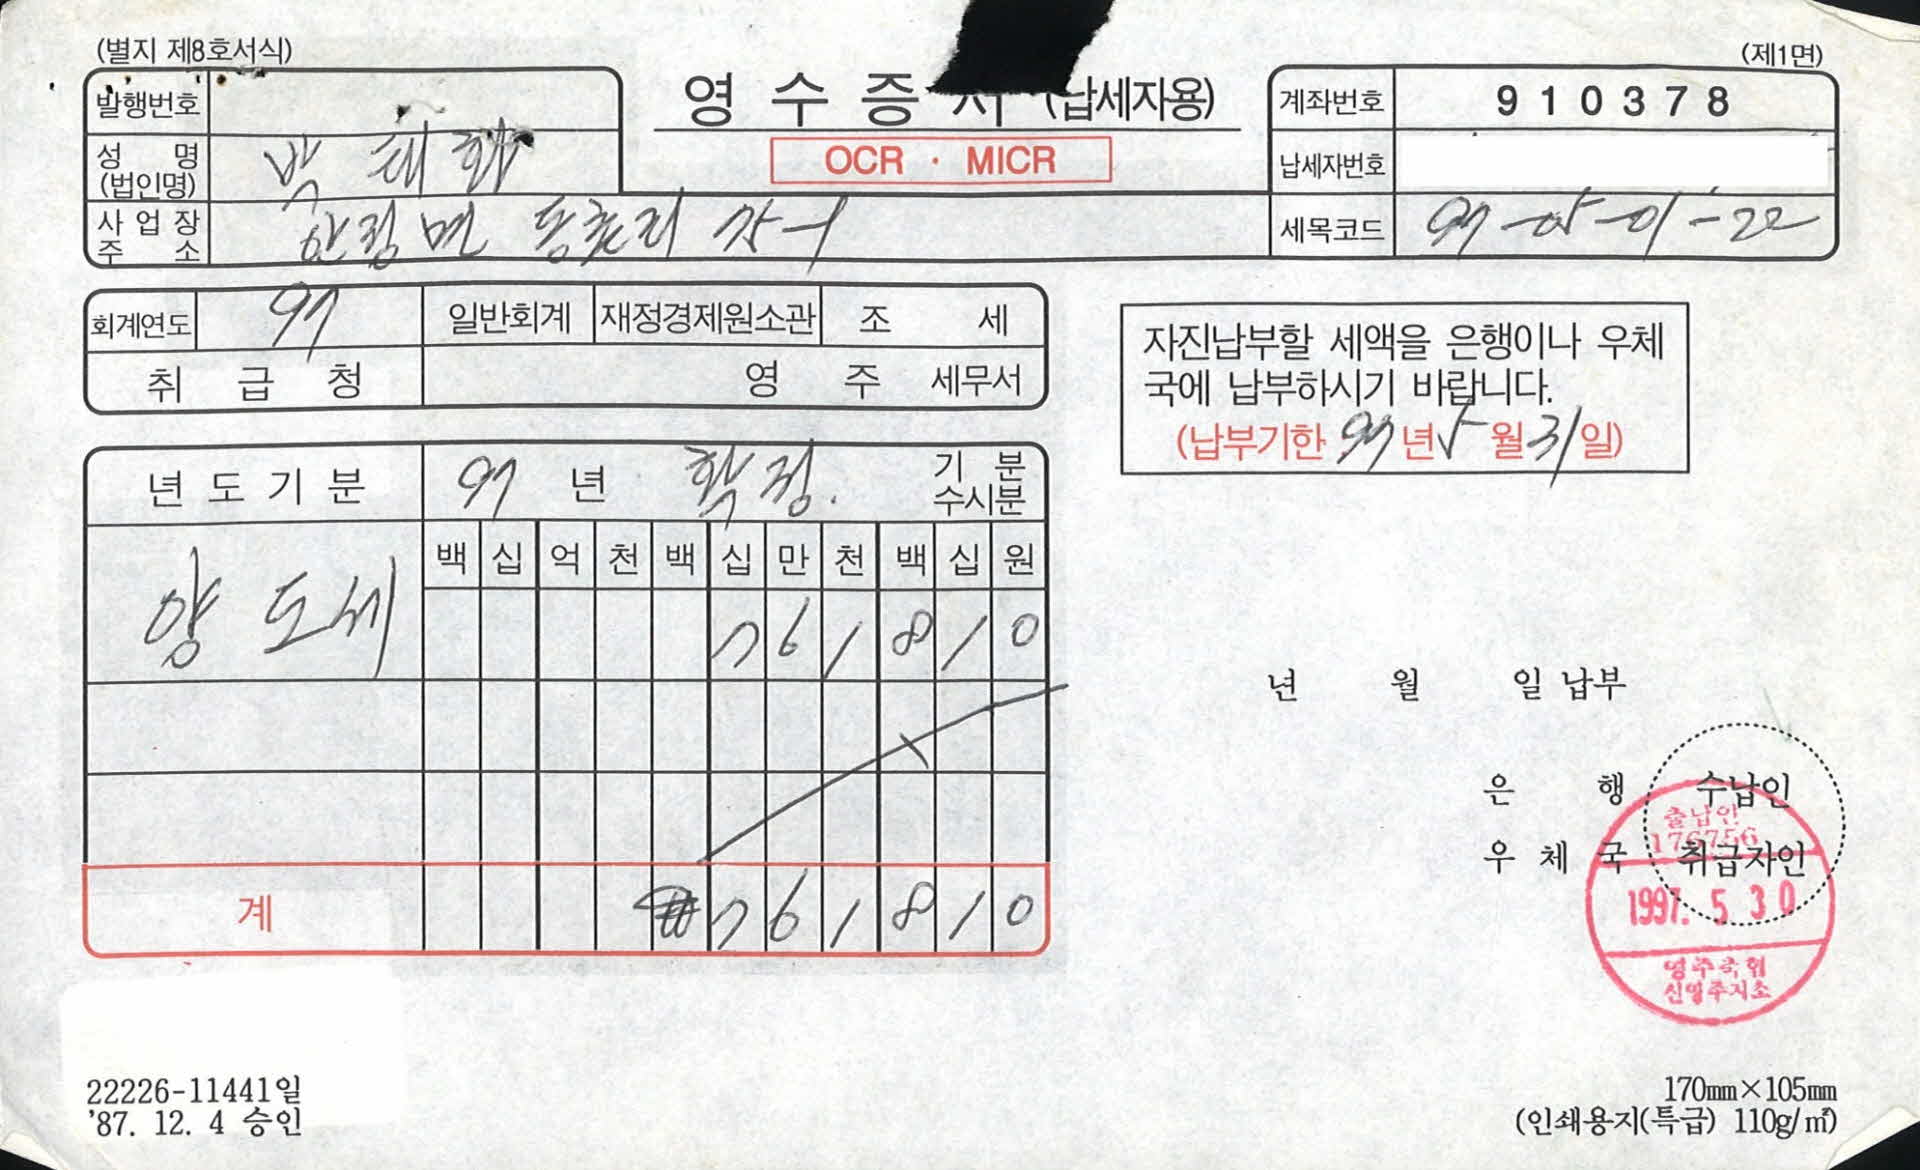 (별지 제8호서식)
(제1면)
영수증서 (납세자용)
OCR · MICR
발행번호
성 명
(법인명)
박태화
사업장
주 소
안정면 동촌리
계좌번호 910378
납세자번호
세목코드 97-05-01-22
회계연도 97 일반회계 재정경제원소관 조 세
취 급 청 영 주 세무서
자진납부할 세액을 은행이나 우체
국에 납부하시기 바랍니다.
(납부기한 97년 5월 31일)
년 도 기 분 97 년 확정. 기 분
수시분
백 십 억 천 백 십 만 천 백 십 원
양도세 7 6 1 8 1 0
계 ₩ 7 6 1 8 1 0
년 월 일 납부
은 행 수납인
우 체 국 취급자인
출납인
176756
1997. 5. 30
영주축협
신영주지소
22226-11441일
'87. 12. 4 승인
170mm×105mm
(인쇄용지(특급) 110g/㎡)